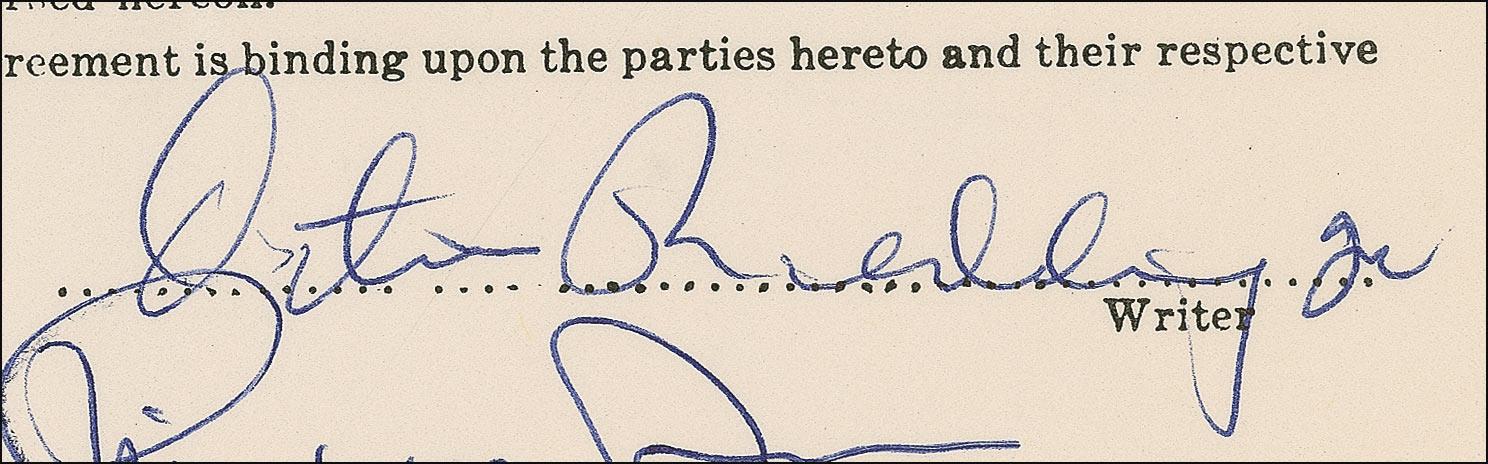 reement is binding upon the parties hereto and their respective
Otis Redding Jr
Writer